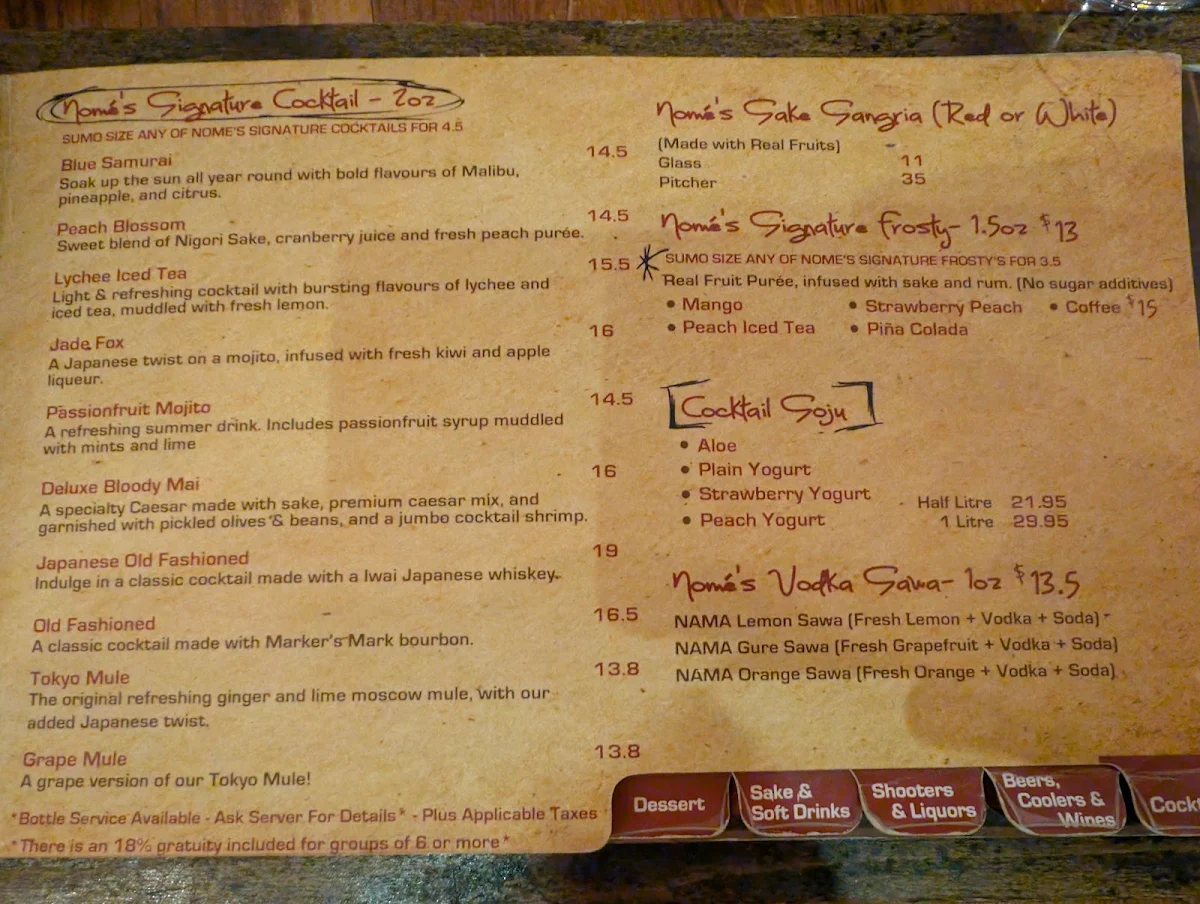 Nomé's Signature Cocktail - 2oz
SUMO SIZE ANY OF NOME'S SIGNATURE COCKTAILS FOR 4.5
Blue Samurai 14.5
Soak up the sun all year round with bold flavours of Malibu,
pineapple, and citrus.
Peach Blossom 14.5
Sweet blend of Nigori Sake, cranberry juice and fresh peach purée.
Lychee Iced Tea 15.5
Light & refreshing cocktail with bursting flavours of lychee and
iced tea, muddled with fresh lemon.
Jade Fox 16
A Japanese twist on a mojito, infused with fresh kiwi and apple
liqueur.
Passionfruit Mojito 14.5
A refreshing summer drink. Includes passionfruit syrup muddled
with mints and lime
Deluxe Bloody Mai 16
A specialty Caesar made with sake, premium caesar mix, and
garnished with pickled olives & beans, and a jumbo cocktail shrimp.
Japanese Old Fashioned 19
Indulge in a classic cocktail made with a Iwai Japanese whiskey.
Old Fashioned 16.5
A classic cocktail made with Marker's Mark bourbon.
Tokyo Mule 13.8
The original refreshing ginger and lime moscow mule, with our
added Japanese twist.
Grape Mule 13.8
A grape version of our Tokyo Mule!
*Bottle Service Available - Ask Server For Details* - Plus Applicable Taxes
*There is an 18% gratuity included for groups of 6 or more*
Nomé's Sake Sangria (Red or White)
(Made with Real Fruits)
Glass 11
Pitcher 35
Nomé's Signature Frosty- 1.5oz $13
SUMO SIZE ANY OF NOME'S SIGNATURE FROSTY'S FOR 3.5
Real Fruit Purée, infused with sake and rum. (No sugar additives)
• Mango • Strawberry Peach • Coffee $15
• Peach Iced Tea • Piña Colada
Cocktail Soju
• Aloe
• Plain Yogurt
• Strawberry Yogurt Half Litre 21.95
• Peach Yogurt 1 Litre 29.95
Nomé's Vodka Sawa- 1oz $13.5
NAMA Lemon Sawa (Fresh Lemon + Vodka + Soda)
NAMA Gure Sawa (Fresh Grapefruit + Vodka + Soda)
NAMA Orange Sawa (Fresh Orange + Vodka + Soda)
Dessert
Sake &
Soft Drinks
Shooters
& Liquors
Beers,
Coolers &
Wines
Cockt